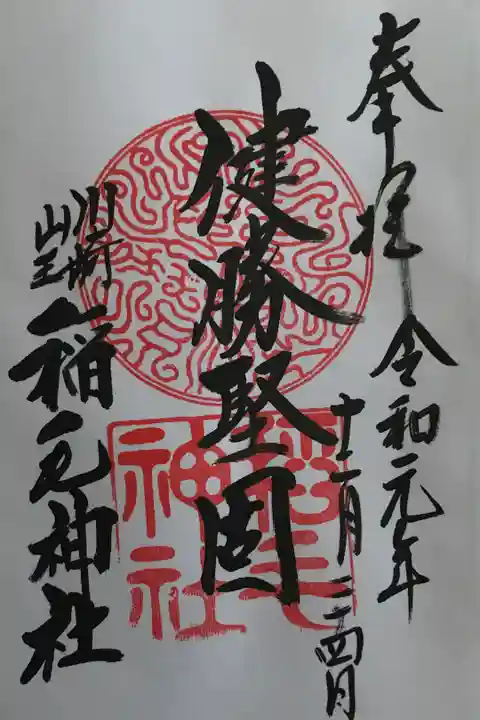 奉拝 令和元年
十一月二十四日
健勝堅固
川崎
山王
稲毛神社
稲毛
神社